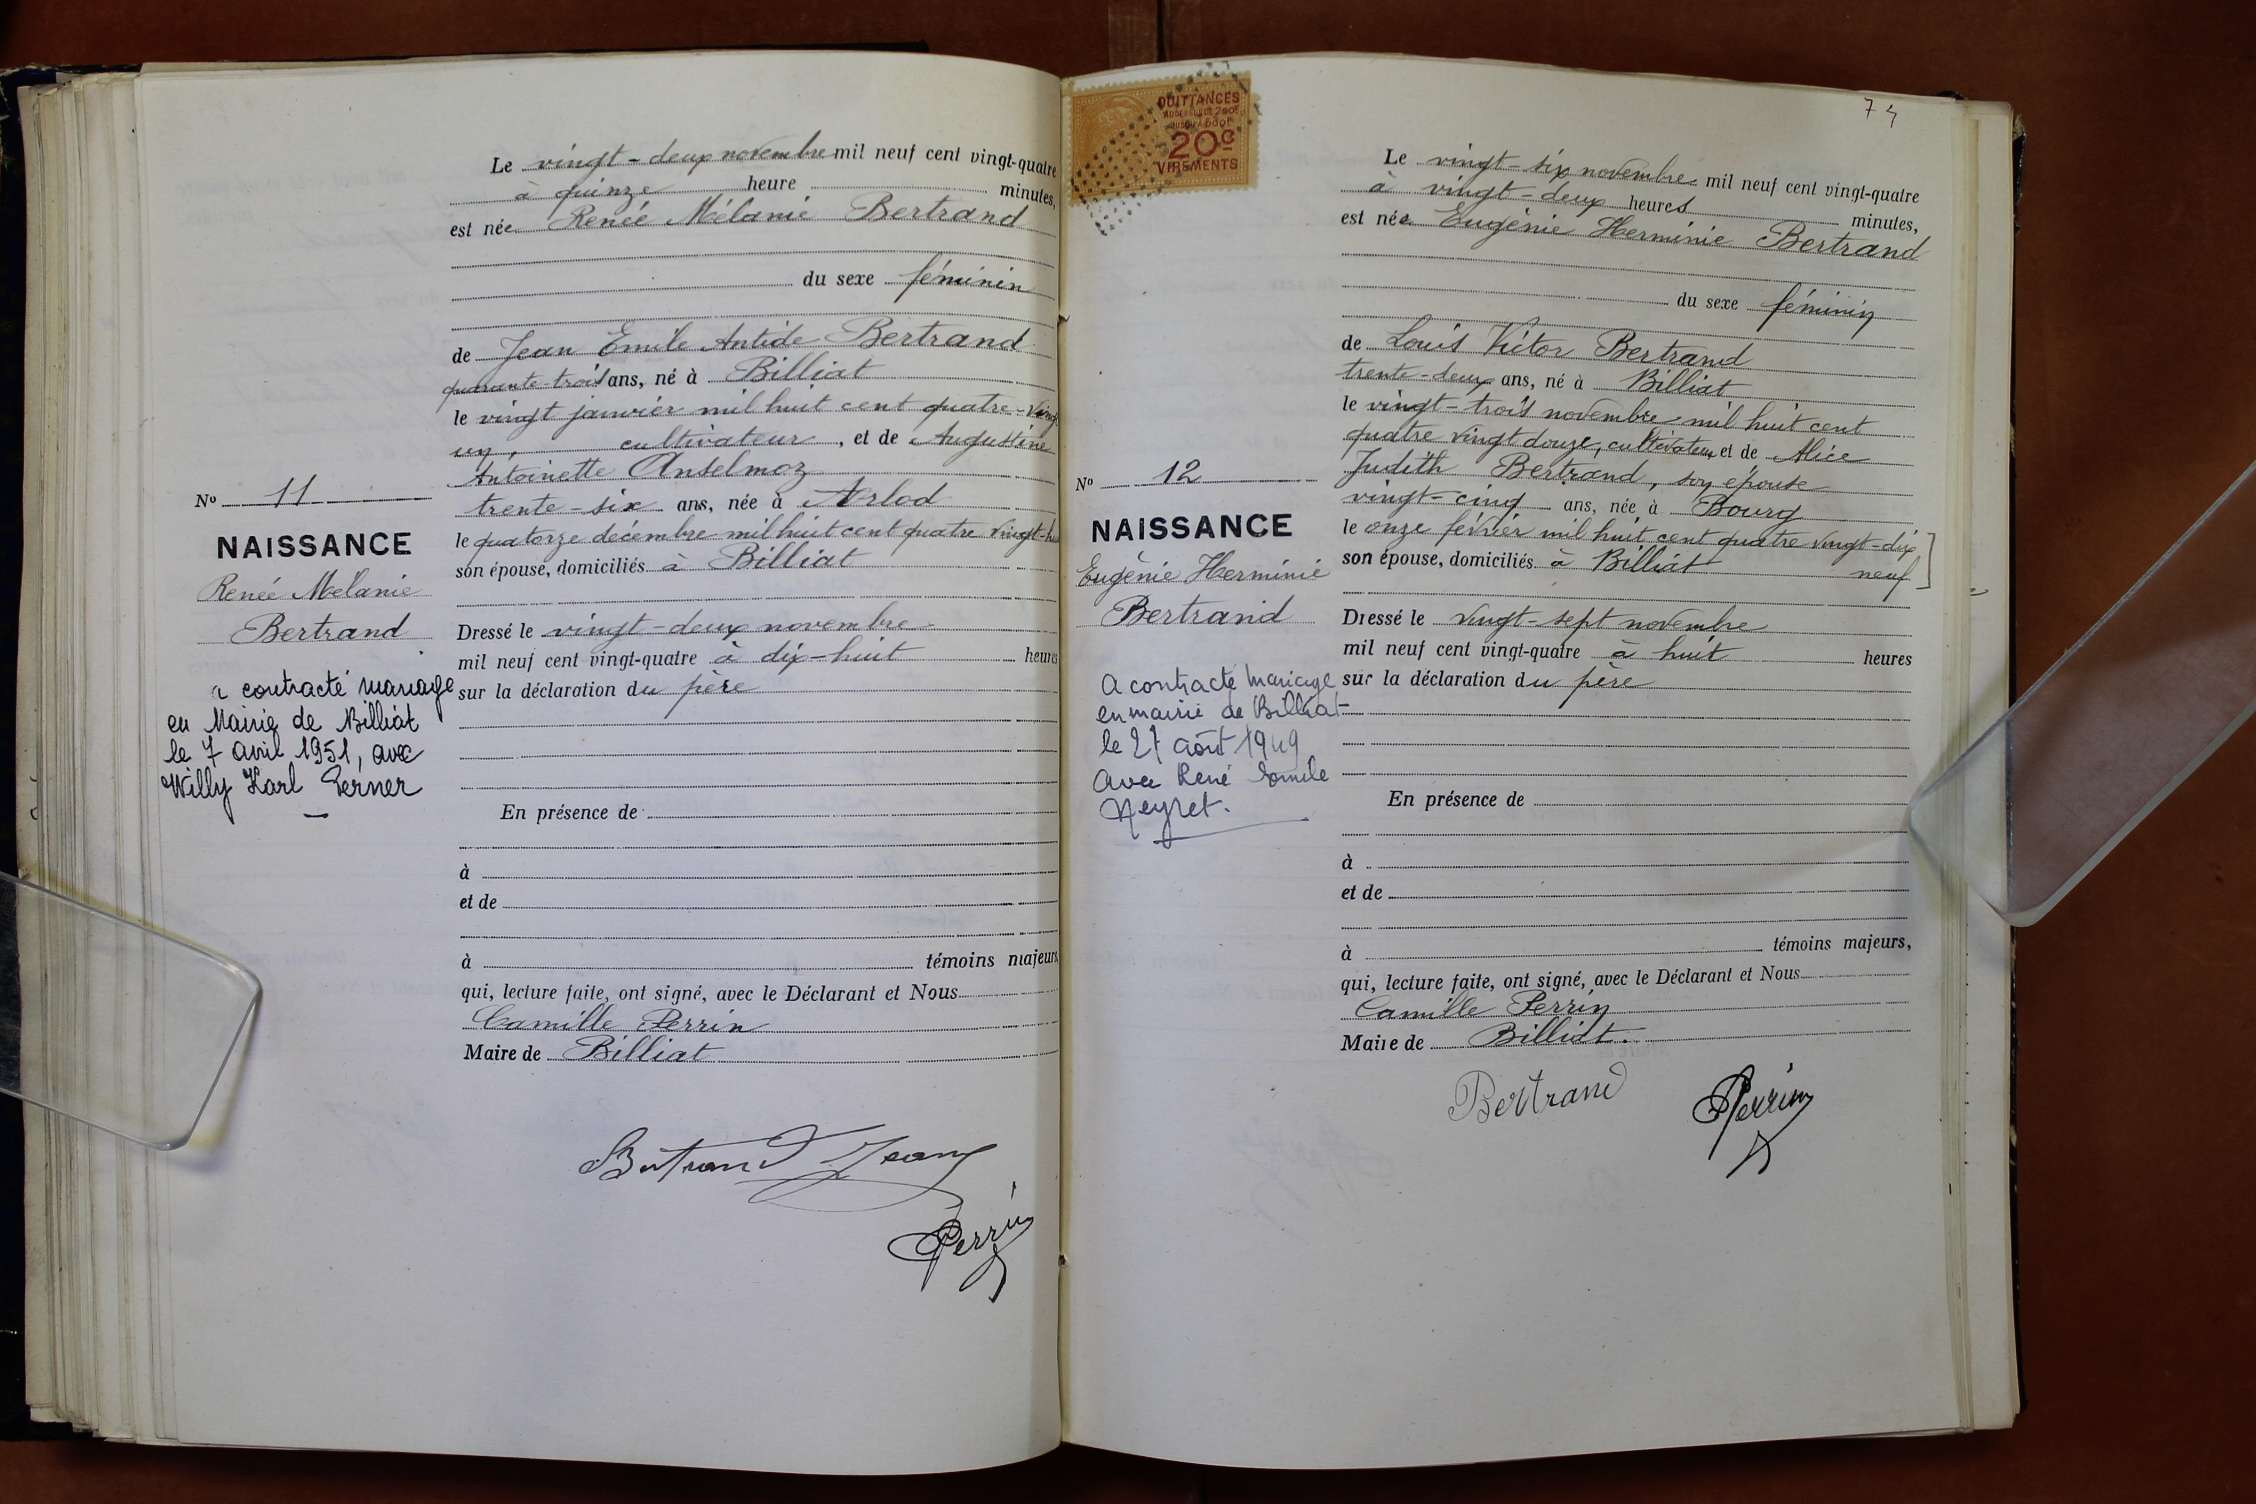 Le vingt-deux novembre mil neuf cent vingt-quatre
à quinze heure minutes,
est née Renée Mélanie Bertrand
du sexe féminin
de Jean Emile Antide Bertrand
quarante-trois ans, né à Billiat
le vingt janvier mil huit cent quatre-vingt
un, cultivateur, et de Augustine
Antoinette Anselmoz
trente-six ans, née à Arlod
le quatorze décembre mil huit cent quatre vingt-h
son épouse, domiciliés à Billiat
Dressé le vingt-deux novembre
mil neuf cent vingt-quatre à dix-huit heures
sur la déclaration du père
En présence de
à
et de
à témoins majeurs,
qui, lecture faite, ont signé, avec le Déclarant et Nous
Camille Perrin
Maire de Billiat
Bertrand Jean
Perrin
No 11
NAISSANCE
Renée Mélanie
Bertrand
a contracté mariage
en Mairie de Billiat
le 7 avril 1951, avec
Willy Karl
QUITTANCES
20c
VIREMENTS
74
Le vingt-six novembre mil neuf cent vingt-quatre
à vingt-deux heures minutes,
est née Eugénie Herminie Bertrand
du sexe féminin
de Louis Victor Bertrand
trente-deux ans, né à Billiat
le vingt-trois novembre mil huit cent
quatre vingt douze, cultivateur et de Alice
Judith Bertrand, son épouse
vingt-cinq ans, née à Bourg
le onze février mil huit cent quatre vingt-dix
neuf
son épouse, domiciliés à Billiat
Dressé le vingt-sept novembre
mil neuf cent vingt-quatre à huit heures
sur la déclaration du père
En présence de
à
et de
à témoins majeurs,
qui, lecture faite, ont signé, avec le Déclarant et Nous
Camille Perrin
Maire de Billiat.
Bertrand Perrin
No 12
NAISSANCE
Eugénie Herminie
Bertrand
a contracté mariage
en mairie de Billiat
le 27 août 1949
avec René Emile
Neyret.